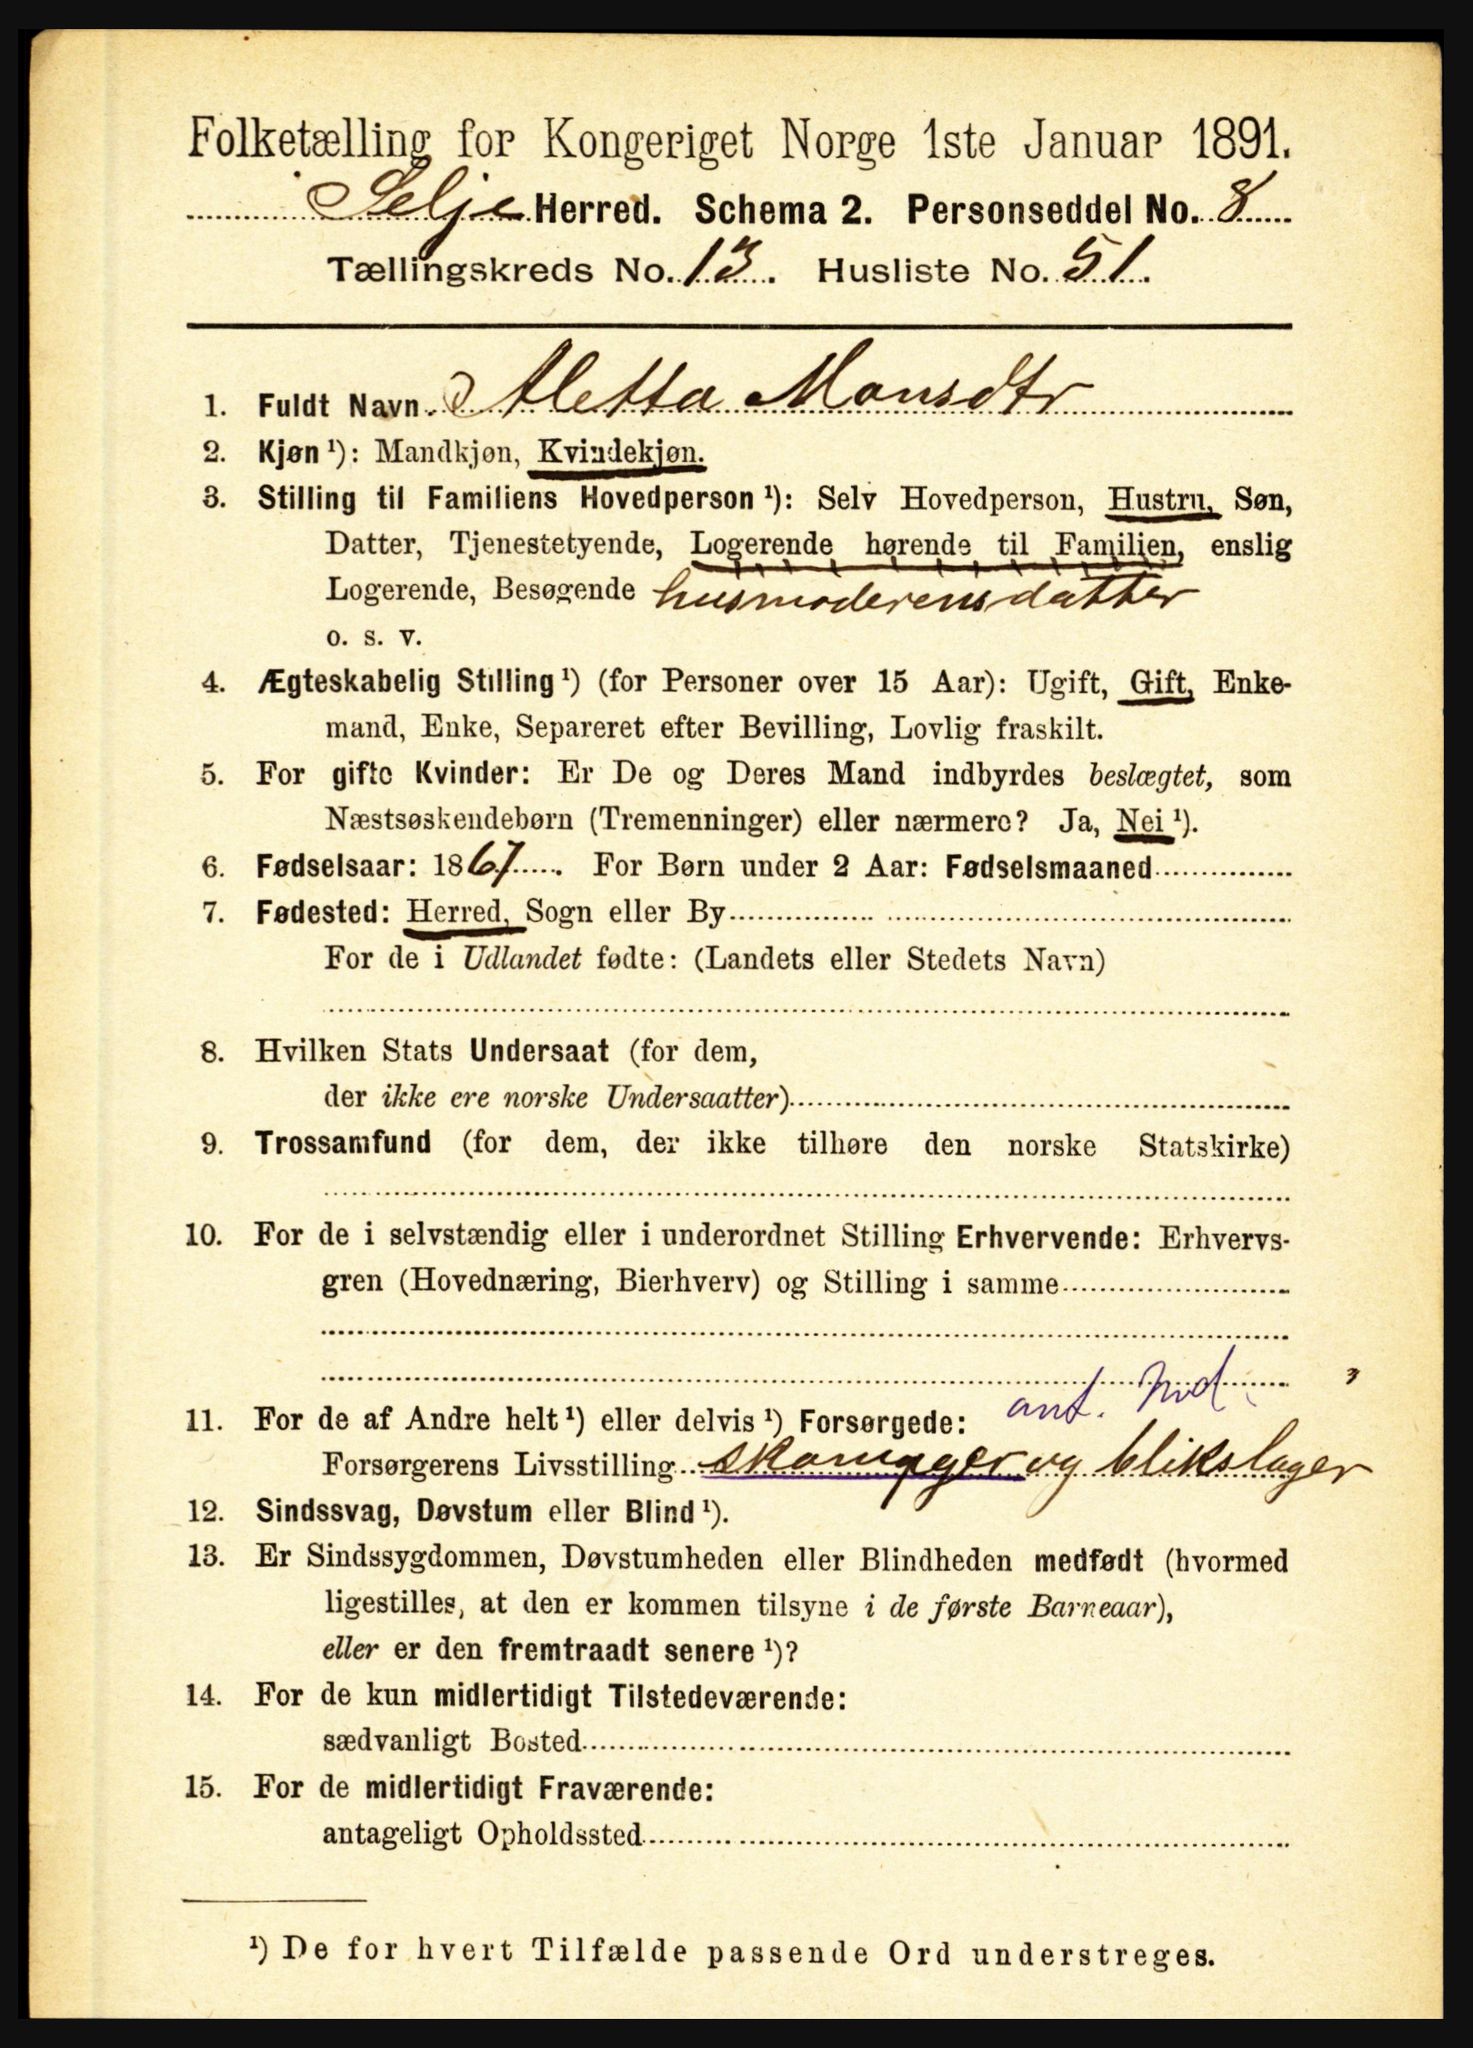 Folketælling for Kongeriget Norge 1ste Januar 1891.
Selje Herred. Schema 2. Personseddel No. 8
Tællingskreds No. 13. Husliste No. 51.
1. Fuldt Navn. Aletta Monsdtr
2. Kjøn ¹): Mandkjøn, Kvindekjøn.
3. Stilling til Familiens Hovedperson ¹): Selv Hovedperson, Hustru, Søn,
Datter, Tjenestetyende, Logerende hørende til Familien, enslig
Logerende, Besøgende husmoderens datter
o. s. v.
4. Ægteskabelig Stilling ¹) (for Personer over 15 Aar): Ugift, Gift, Enke-
mand, Enke, Separeret efter Bevilling, Lovlig fraskilt.
5. For gifte Kvinder: Er De og Deres Mand indbyrdes beslægtet, som
Næstsøskendebørn (Tremenninger) eller nærmere? Ja, Nei ¹).
6. Fødselsaar: 1867. For Børn under 2 Aar: Fødselsmaaned
7. Fødested: Herred, Sogn eller By
For de i Udlandet fødte: (Landets eller Stedets Navn)
8. Hvilken Stats Undersaat (for dem,
der ikke ere norske Undersaatter)
9. Trossamfund (for dem, der ikke tilhøre den norske Statskirke)
10. For de i selvstændig eller i underordnet Stilling Erhvervende: Erhvervs-
gren (Hovednæring, Bierhverv) og Stilling i samme
ant. hvd.
11. For de af Andre helt ¹) eller delvis ¹) Forsørgede:
Forsørgerens Livsstilling skomager og blikslager
12. Sindssvag, Døvstum eller Blind ¹).
13. Er Sindssygdommen, Døvstumheden eller Blindheden medfødt (hvormed
ligestilles, at den er kommen tilsyne i de første Barneaar),
eller er den fremtraadt senere ¹)?
14. For de kun midlertidigt Tilstedeværende:
sædvanligt Bosted
15. For de midlertidigt Fraværende:
antageligt Opholdssted
¹) De for hvert Tilfælde passende Ord understreges.